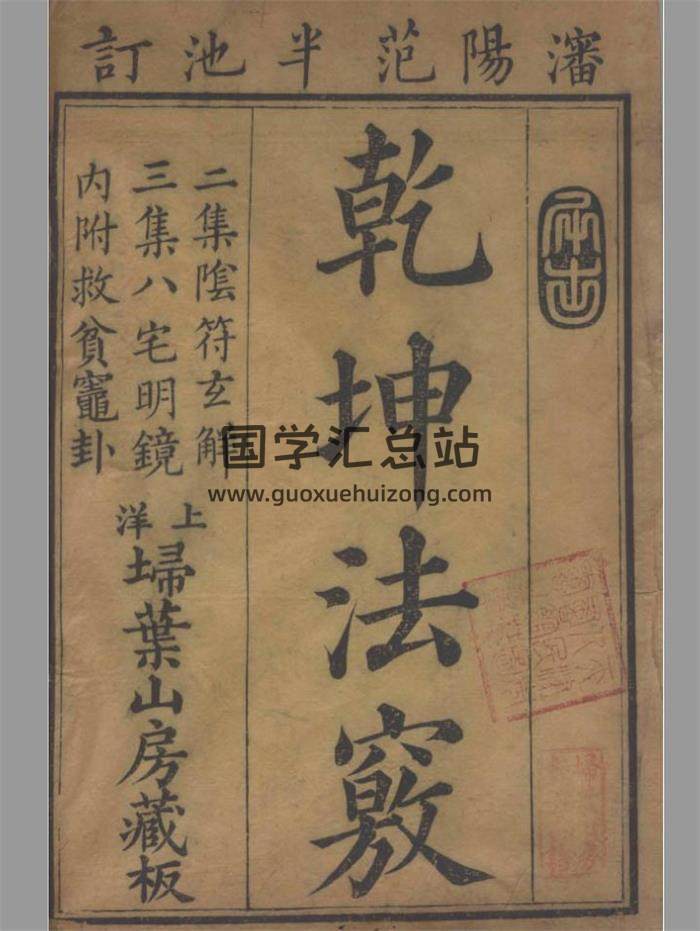 瀋陽范半池訂
乾坤法竅
二集陰符玄解
三集八宅明鏡
内附救貧竈卦
上洋
埽葉山房藏板
国学汇总站
www.guoxuehuizong.com